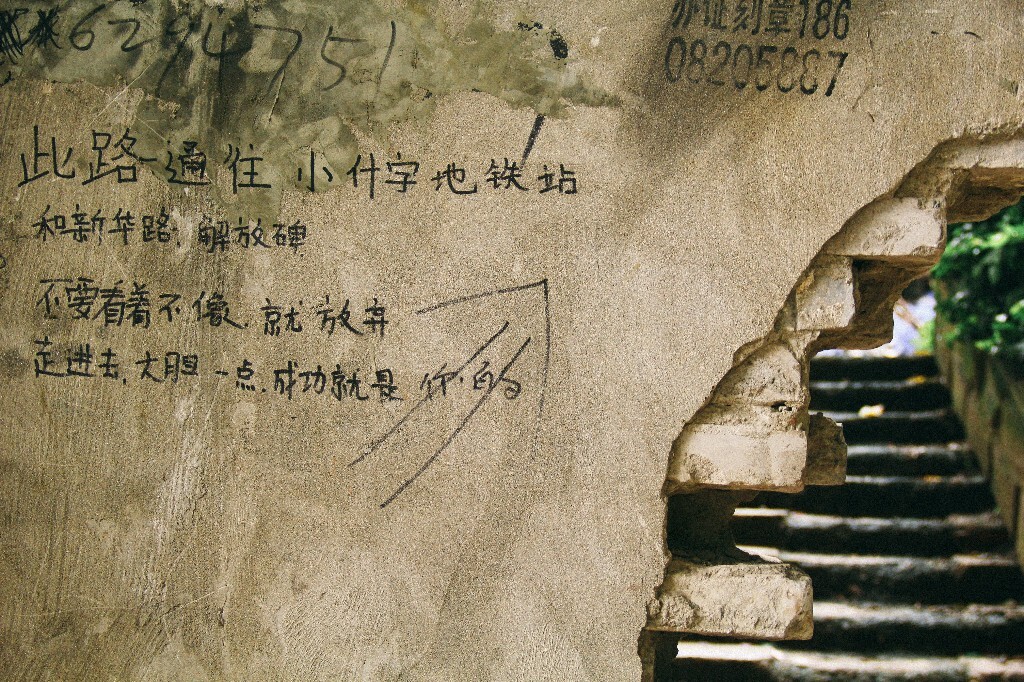 62947751
办证刻章186
08205887
此路通往 小什字地铁站
和新华路.解放碑
不要看着不像.就放弃
走进去.大胆一点.成功就是 你的